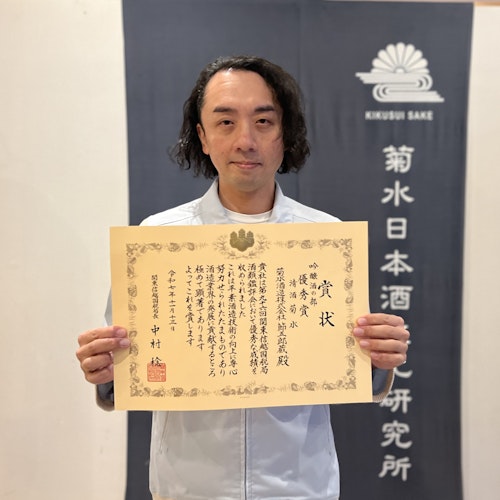 KIKUSUI SAKE
菊水日本酒
研究所
賞状
吟醸酒の部
優秀賞
清酒 菊水
菊水酒造株式会社 節五郎蔵 殿
貴社は第九十六回関東信越国税局
酒類鑑評会において優秀な成績を
収められました
これは平素酒造技術の向上に専心
努力せられたたまものであり
酒造業界の発展に貢献するところ
極めて顕著であります
よってこれを賞します
令和七年十一月十三日
関東信越国税局長 中村 稔